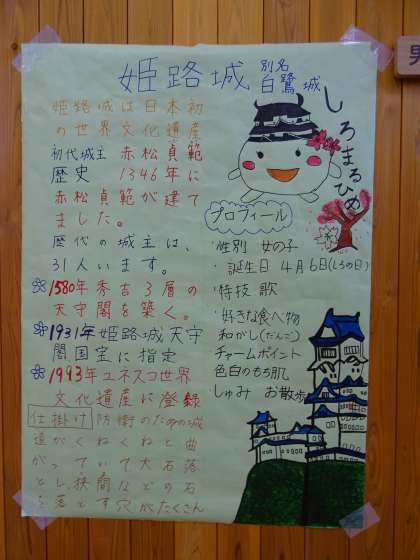 姫路城 別名
白鷺城
姫路城は日本初
の世界文化遺産
初代城主 赤松貞範
歴史 1346年に
赤松貞範が建て
ました。
歴代の城主は、
31人います。
1580年秀吉3層の
天守閣を築く。
1931年姫路城天守
閣国宝に指定
1993年ユネスコ世界
文化遺産に登録
仕掛け 防衛のための城
道がくねくねと曲
がっていて大石落
とし、狭間などの石
を落とす穴がたくさん
しろまるひめ
プロフィール
・性別 女の子
・誕生日 4月6日(しろの日)
・特技 歌
・好きな食べ物
和がし(だんご)
チャームポイント
色白のもち肌
しゅみ お散歩
男